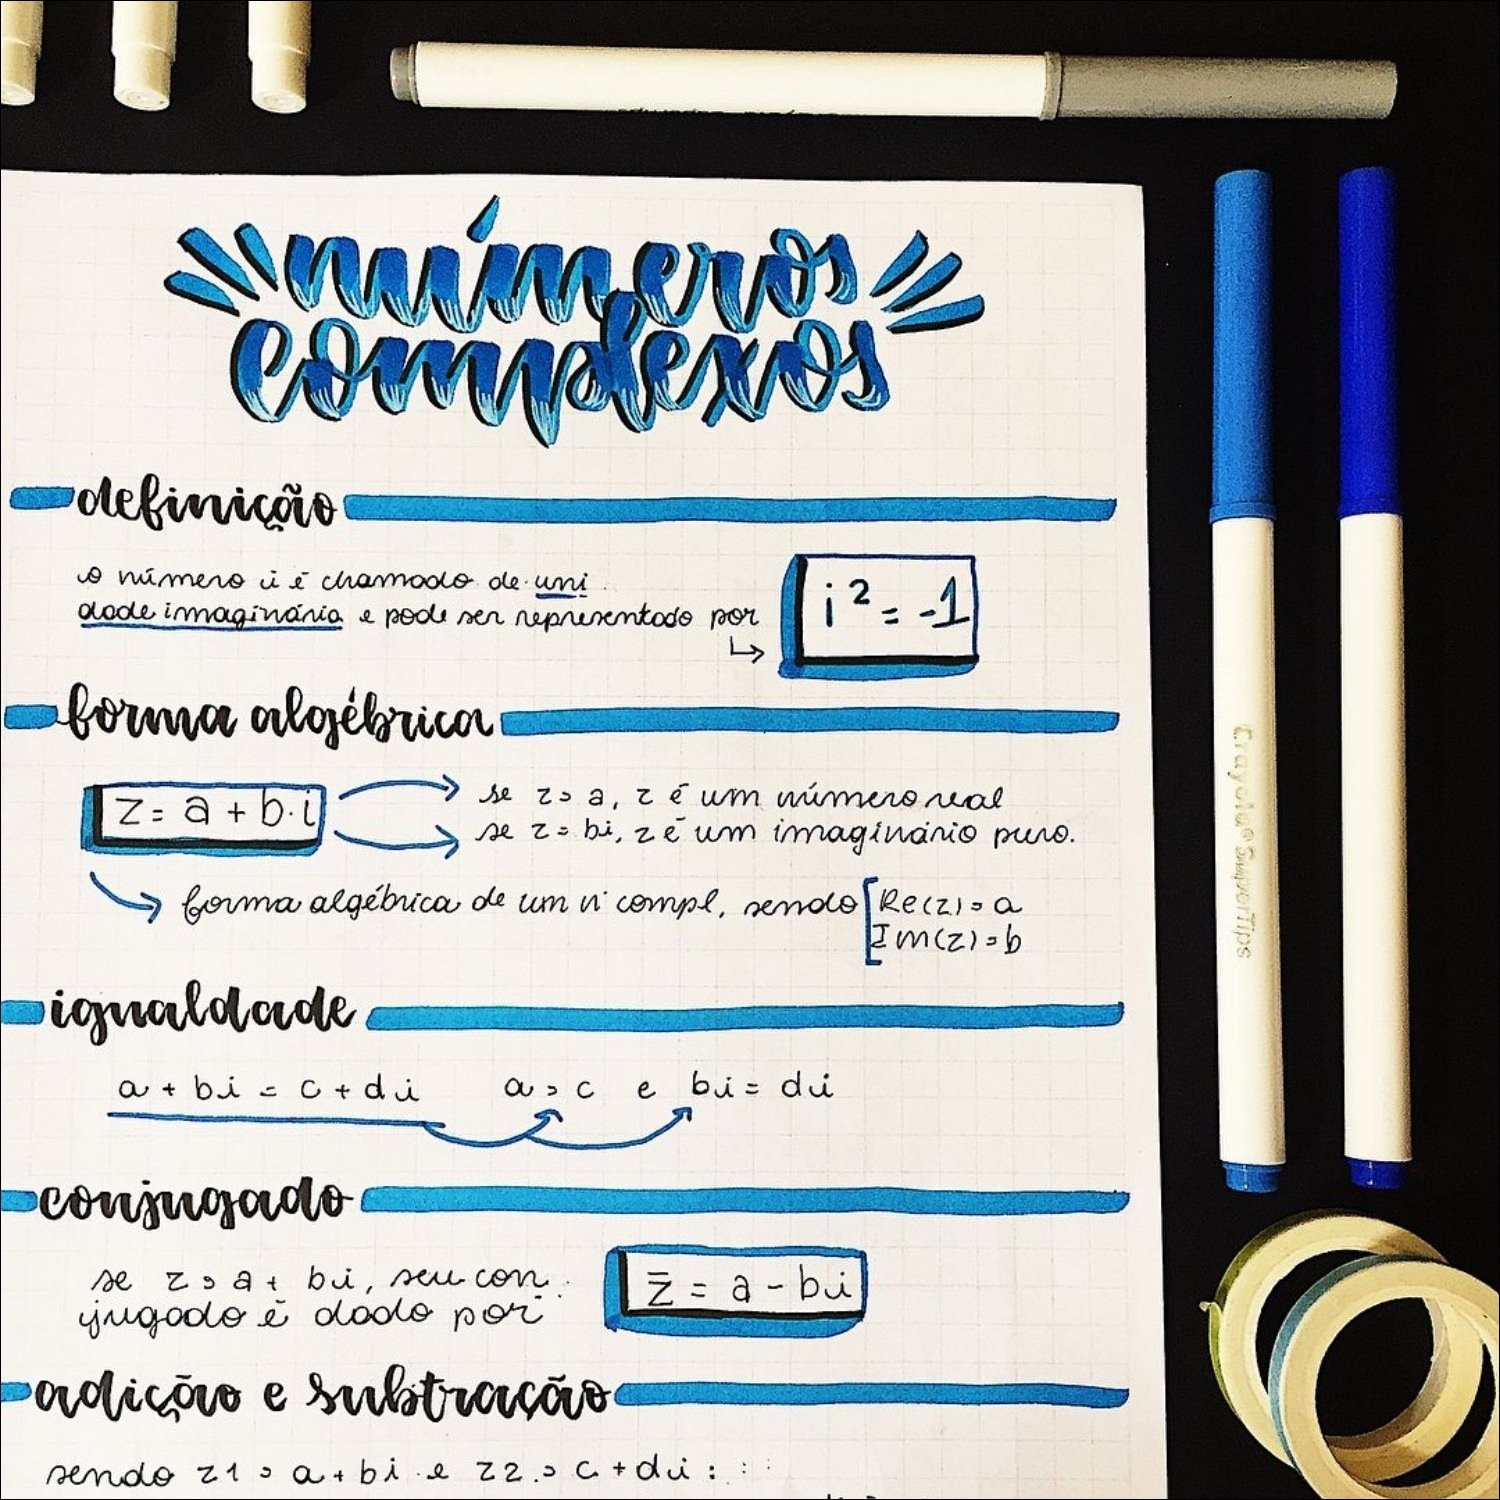 números
complexos
definição
o número i é chamado de uni
dade imaginária e pode ser representado por
i² = -1
forma algébrica
z = a + b·i
se z = a, z é um número real
se z = bi, z é um imaginário puro.
forma algébrica de um n° compl, sendo
Re(z) = a
Im(z) = b
igualdade
a + bi = c + di a = c e bi = di
conjugado
se z = a + bi, seu con
jugado é dado por
z̄ = a - bi
adição e subtração
sendo z1 = a + bi e z2 = c + di :
Crayola® SuperTips